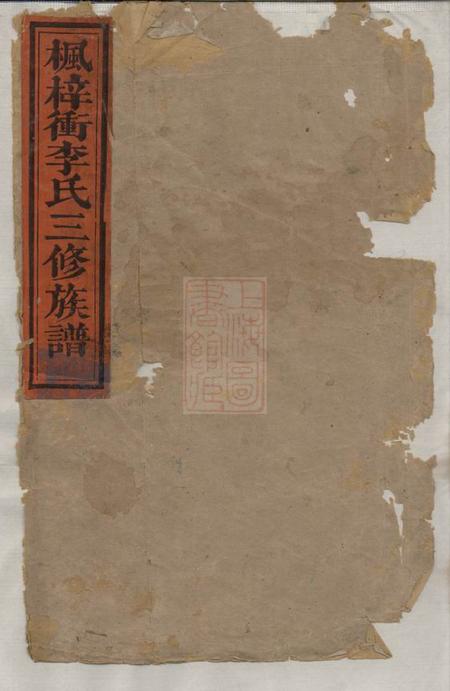 楓梓衝李氏三修族譜
上海圖
書館藏